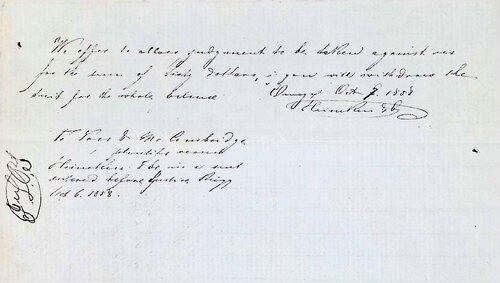 We offer to allow judgement to be taken against us
for the sum of sixty dollars, if you will withdraw the
suit for the whole balance Oct 7. 1858
& Co
To & Mc Cambridge
plaintiffs versus
& Co, in a suit
entered before Justice
Oct 6. 1858.